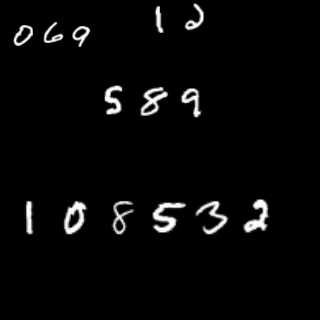 069
12
589
108532